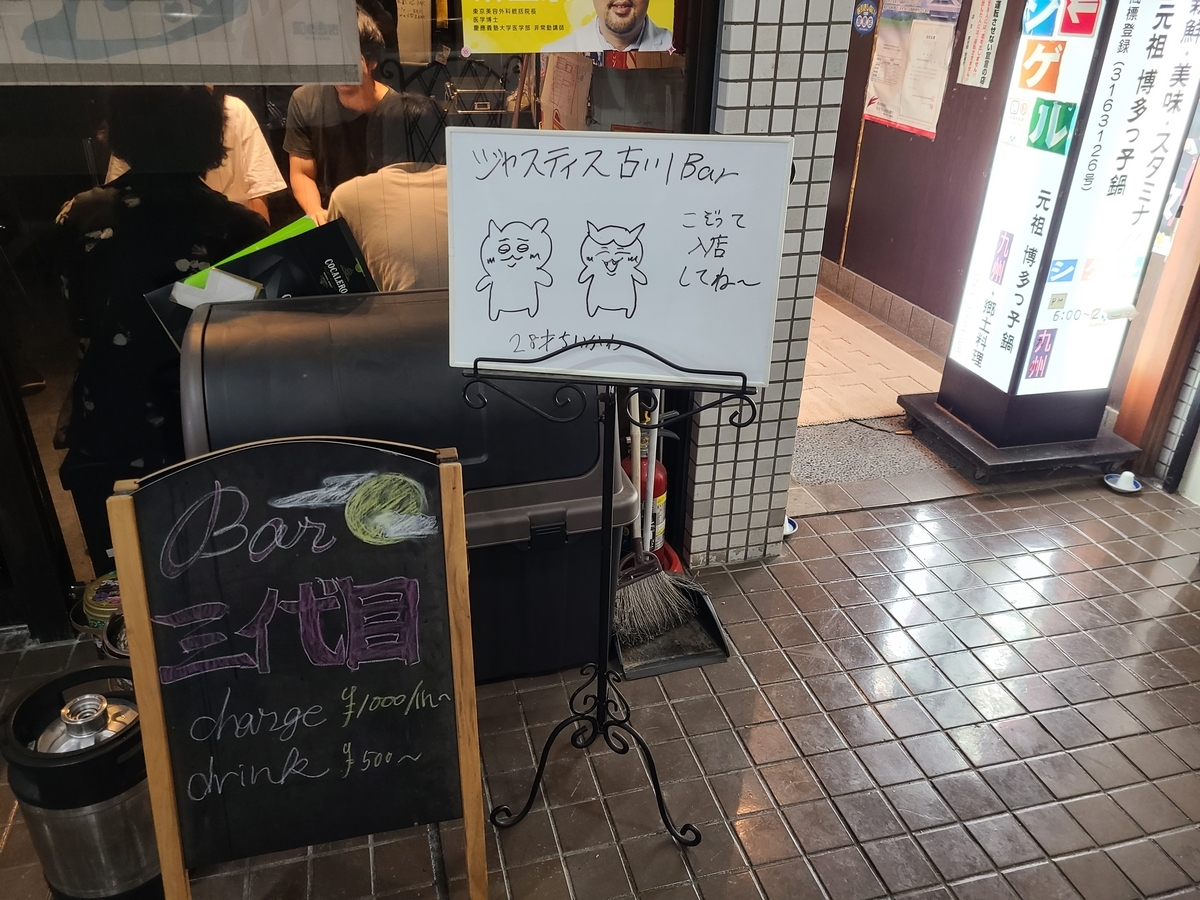 東京美容外科統括院長
医学博士
慶應義塾大学医学部 非常勤講師
ジャスティス古川Bar
こぞって
入店
してね〜
28才ちいかわ
COCALERO
Bar
三代目
charge ¥1000/1h~
drink ¥500~
シ
ゲ
ル
元祖 博多っ子鍋
九州・郷土料理
商標登録(3163126号)
新鮮・美味 スタミナ
元祖 博多っ子鍋
6:00〜2
九州